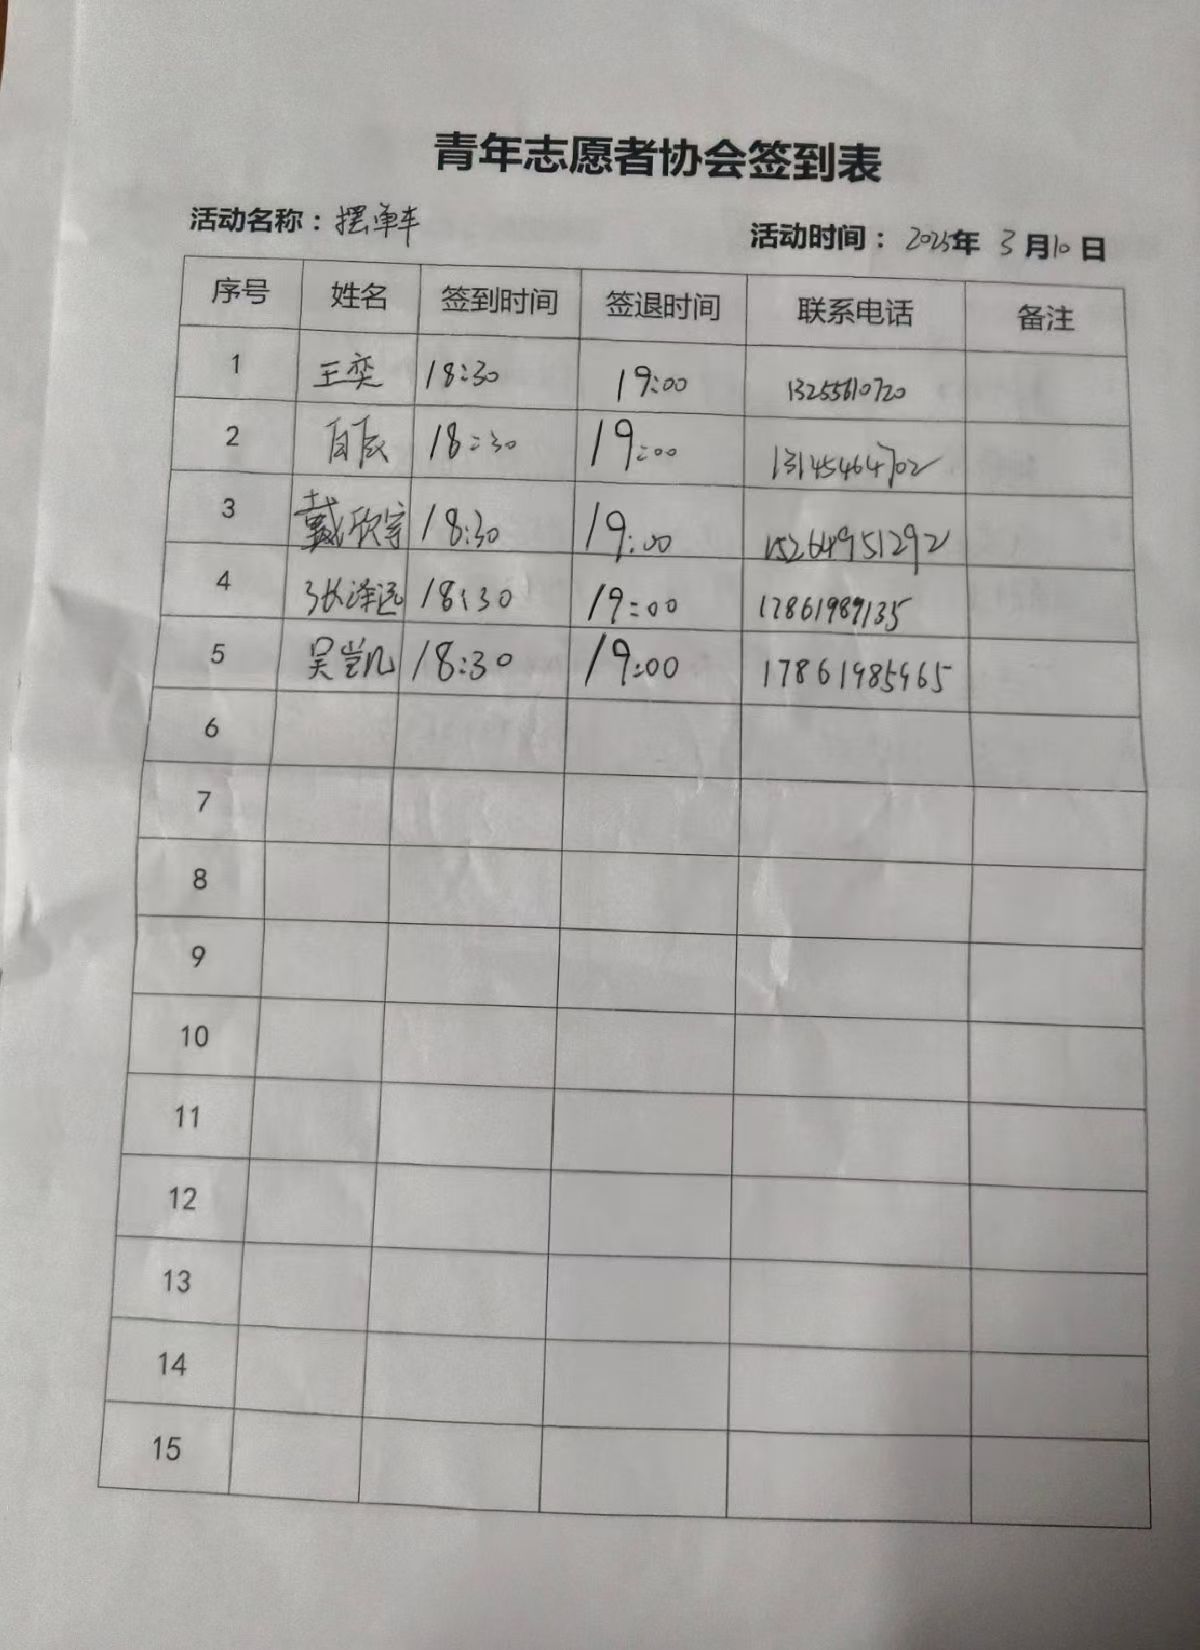 青年志愿者协会签到表
活动名称：摆单车 活动时间：2025年 3月10日
序号 姓名 签到时间 签退时间 联系电话 备注
1 王奕 18:30 19:00 13255610720
2 18:30 19:00 13145464702
3 戴欣宇 18:30 19:00 15264951292
4 张泽远 18:30 19:00 17861989135
5 吴岂凡 18:30 19:00 17861985965
6
7
8
9
10
11
12
13
14
15